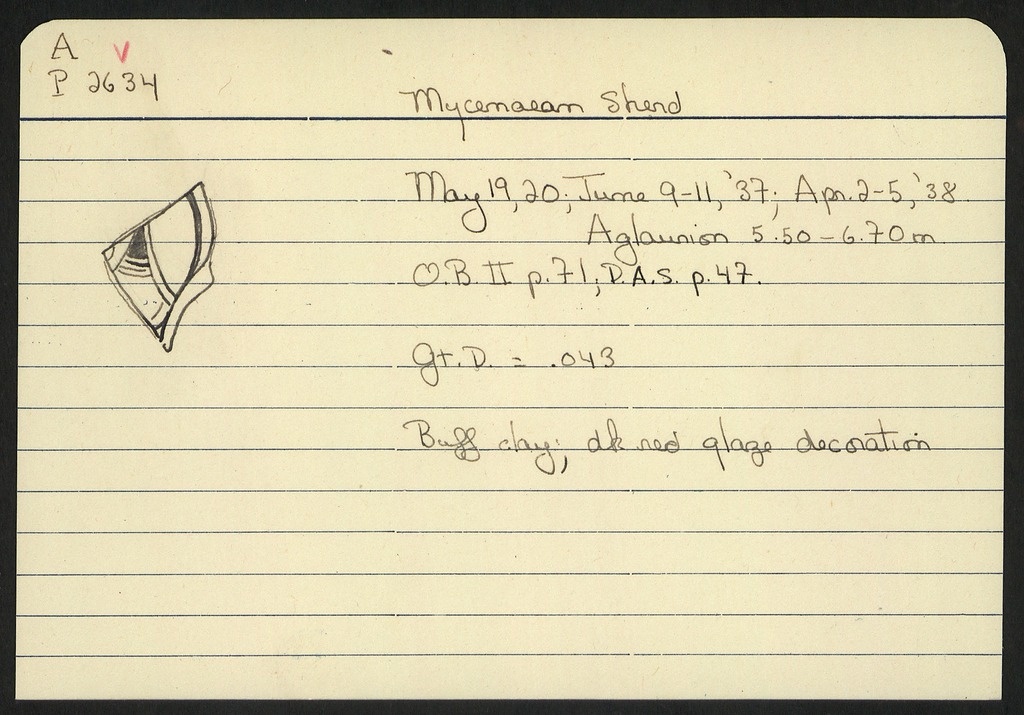 A v
P 2634
Mycenaean Sherd
May 19, 20; June 9-11, '37; Apr. 2-5, '38
Aglaurion 5.50 - 6.70 m
O.B. II p. 71; D.A.S. p. 47.
Gt. D. = .043
Buff clay; dk red glaze decoration